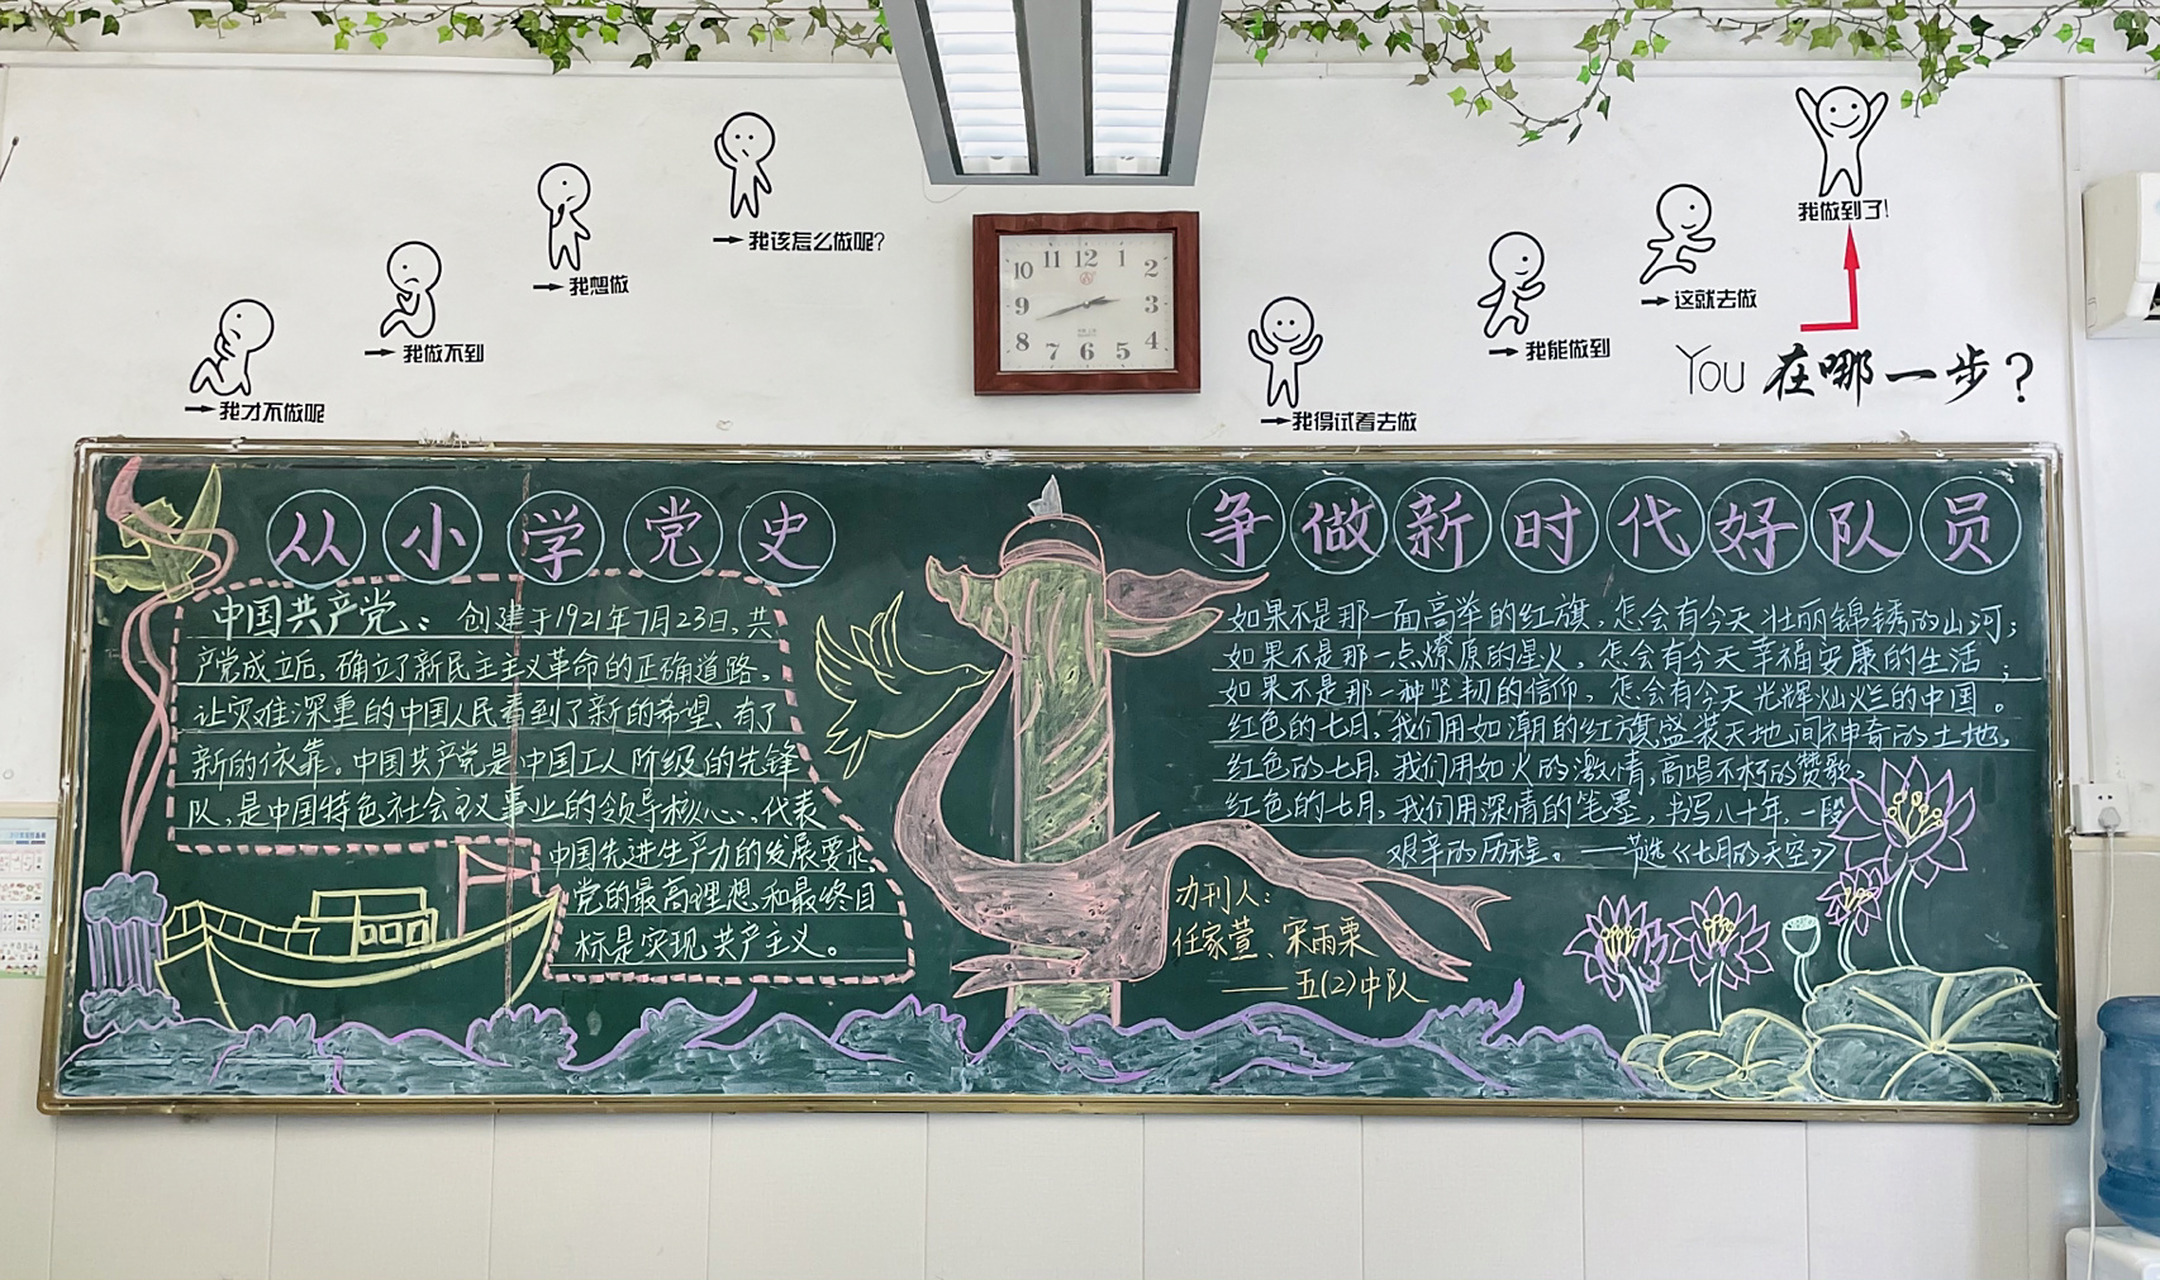 我做到了!
我该怎么做呢?
我想做
这就去做
我做不到
我能做到
You 在哪一步?
我才不做呢
我得试着去做
10 11 12 1 2
9 3
8 7 6 5 4
从小学党史
中国共产党：创建于1921年7月23日,共
产党成立后,确立了新民主主义革命的正确道路,
让灾难深重的中国人民看到了新的希望、有了
新的依靠。中国共产党是中国工人阶级的先锋
队,是中国特色社会主义事业的领导核心、代表
中国先进生产力的发展要求,
党的最高理想和最终目
标是实现共产主义。
争做新时代好队员
如果不是那一面高举的红旗,怎会有今天壮丽锦锈的山河;
如果不是那一点燎原的星火,怎会有今天幸福安康的生活;
如果不是那一种坚韧的信仰,怎会有今天光辉灿烂的中国。
红色的七月,我们用如潮的红旗,盛装天地间神奇的土地,
红色的七月,我们用如火的激情,高唱不朽的赞歌,
红色的七月,我们用深情的笔墨,书写八十年,一段
艰辛的历程。——节选《七月的天空》
办刊人：
任家萱、宋雨栗
——五(2)中队